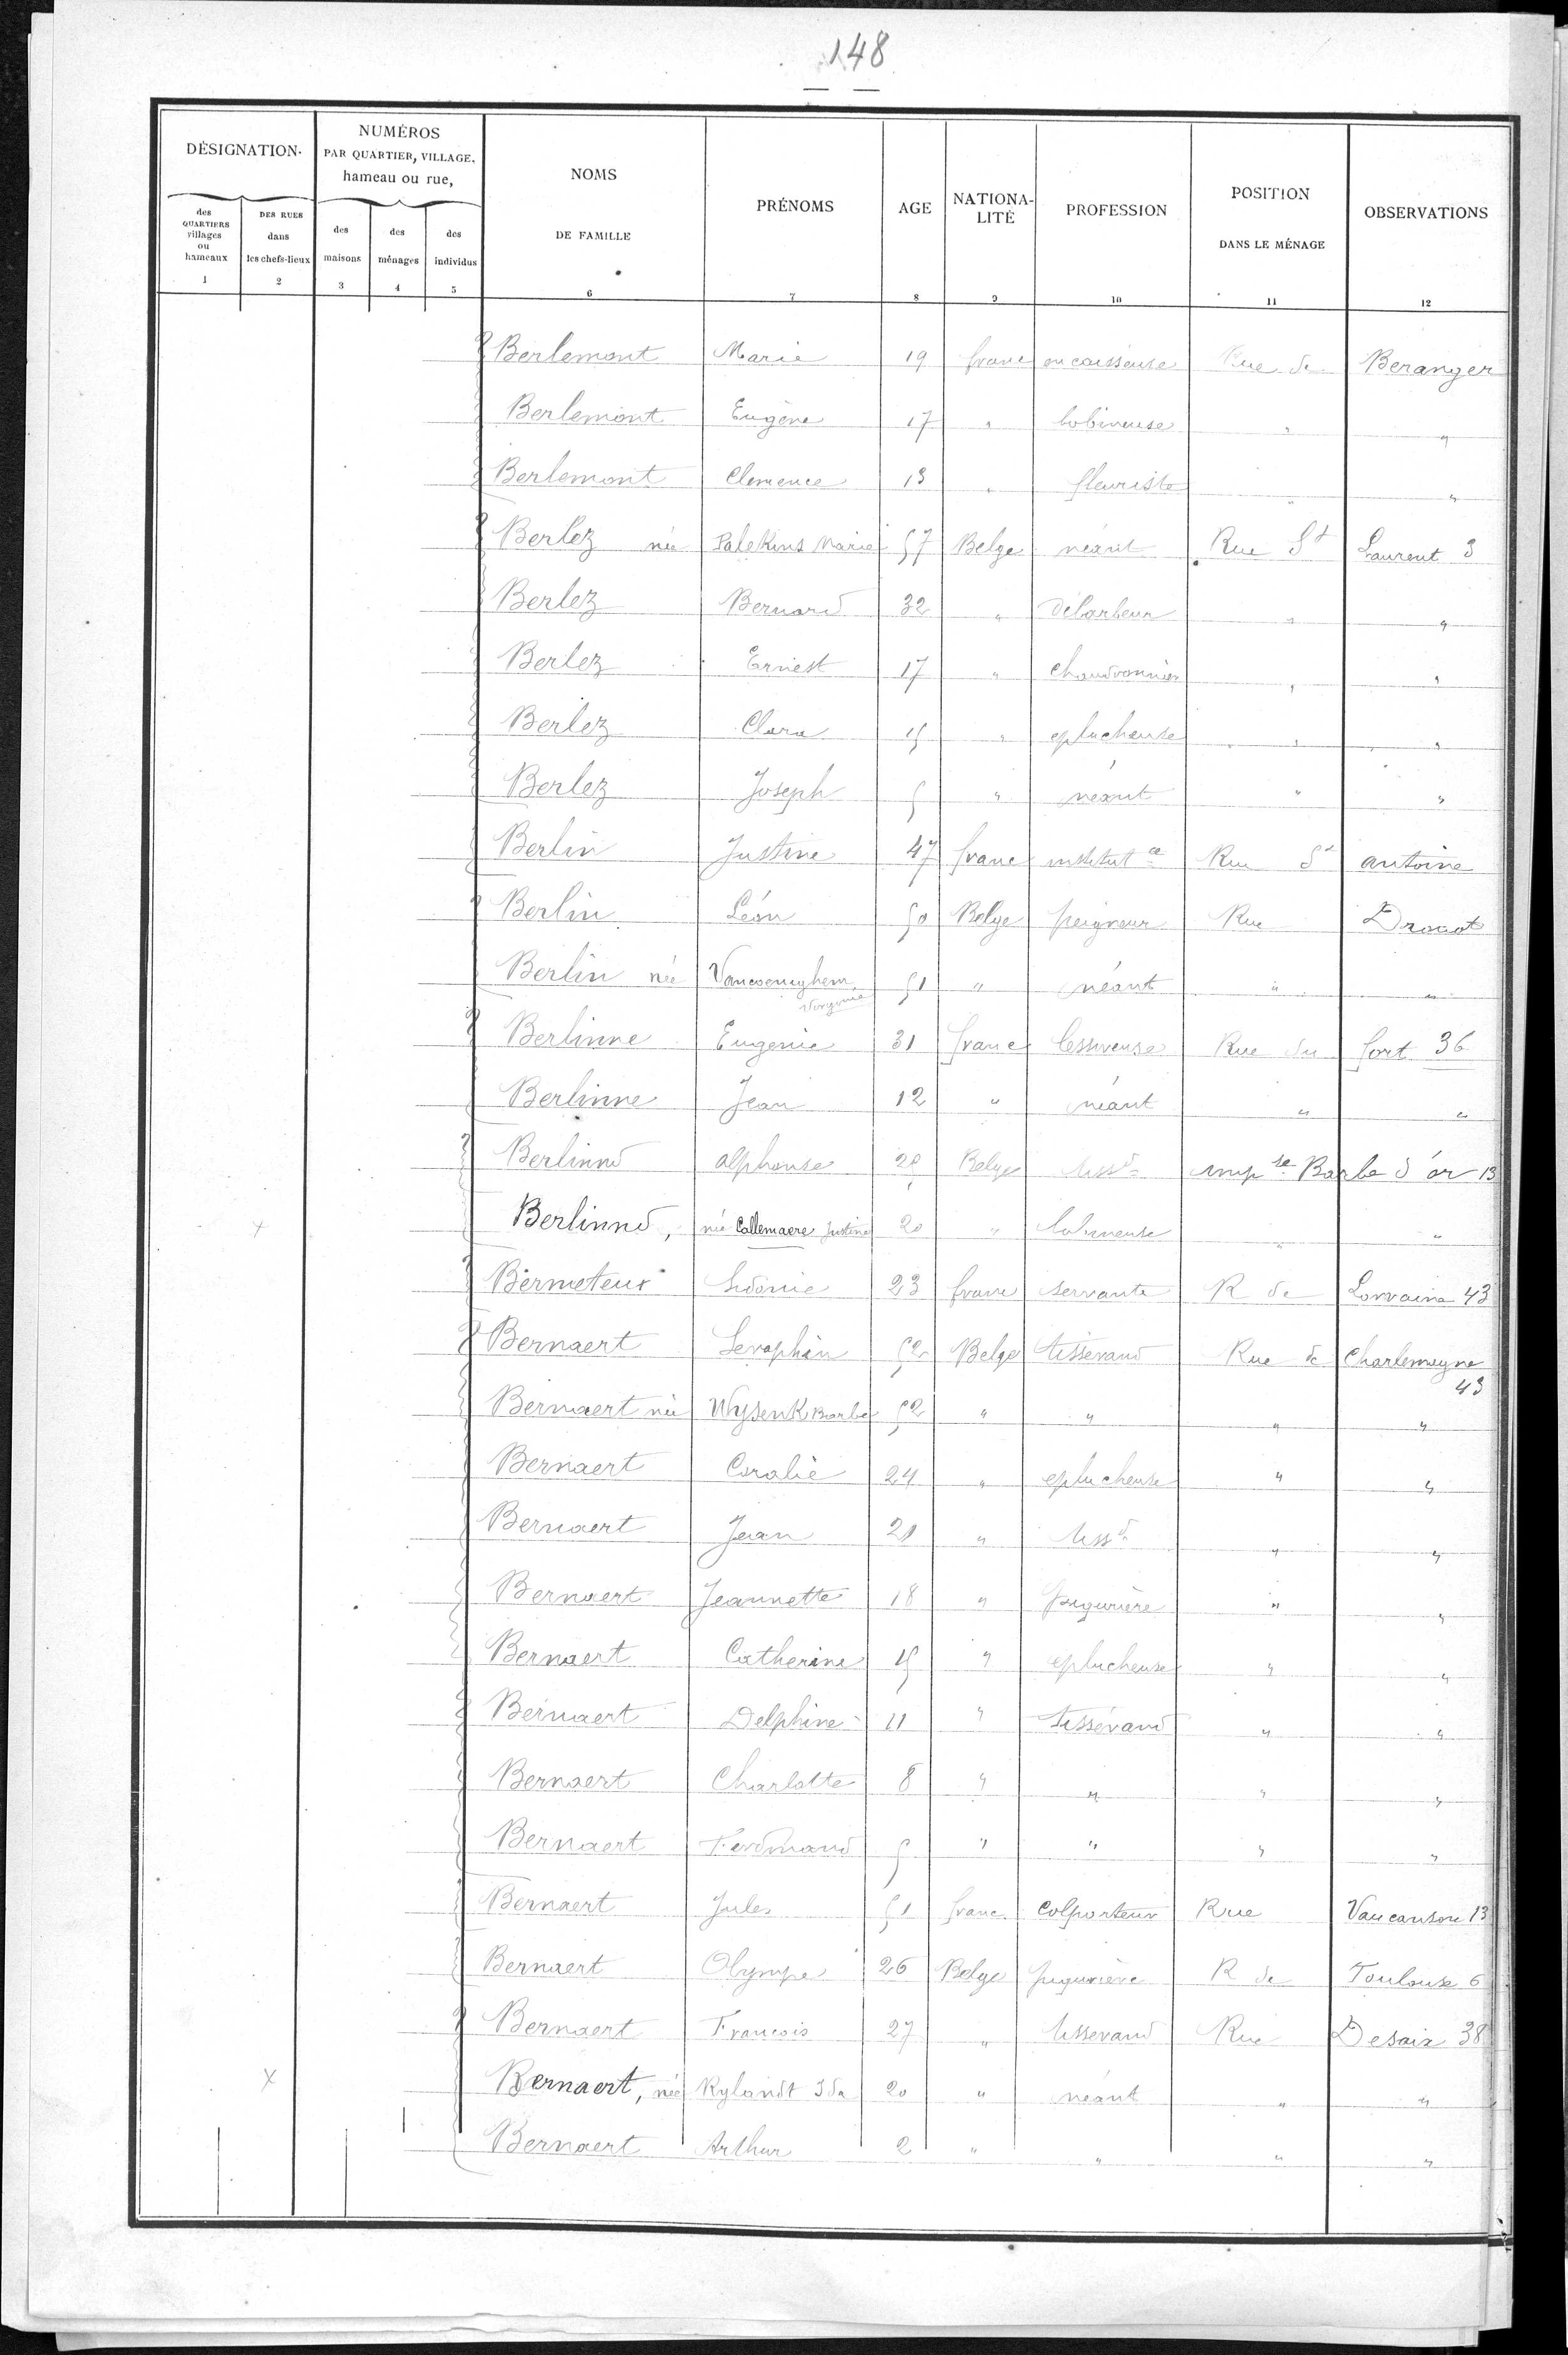 148
DÉSIGNATION
NUMÉROS
PAR QUARTIER, VILLAGE,
hameau ou rue,
NOMS
DE FAMILLE
PRÉNOMS
AGE
NATIONA-
LITÉ
PROFESSION
POSITION
DANS LE MÉNAGE
OBSERVATIONS
des
QUARTIERS
villages
ou
hameaux
DES RUES
dans
les chefs-lieux
des
maisons
des
ménages
des
individus
1 2 3 4 5 6 7 8 9 10 11 12
Berlemont Marie 19 franc encaisseuse Rue de Beranger
Berlemont Eugène 17 " bobineuse " "
Berlemont Clemence 13 " fleuriste " "
Berlez née Palekins Marie 57 Belge néant Rue St Laurent 3
Berlez Bernard 32 " débarbeur " "
Berlez Ernest 17 " chaudronnier " "
Berlez Clara 15 " eplucheuse " "
Berlez Joseph 5 " néant " "
Berlin Justine 47 franc institutce Rue St antoine
Berlin Léon 50 Belge peigneur Rue Drouot
Berlin née 51 " néant " "
Berlinne Eugenie 31 franc lessiveuse Rue du fort 36
Berlinne Jean 12 " néant " "
Berlinnd alphonse 25 Belge tissd impse Barbe d'or 13
x Berlinnd, née Callemaere Justine 20 " bobineuse " "
Bermeteux Sidonie 23 franc servante R de Lorraine 43
Bernaert Seraphin 52 Belge tisserand Rue de Charlemagne
43
Bernaert née Wysenk Barbe 52 " " " "
Bernaert Coralie 24 " eplucheuse " "
Bernaert Jean 21 " tissd " "
Bernaert Jeannette 18 " piqurière " "
Bernaert Catherine 15 " eplucheuse " "
Bernaert Delphine 11 " tisserand " "
Bernaert Charlotte 8 " " " "
Bernaert Ferdinand 5 " " " "
Bernaert Jules 51 franc. Colporteur Rue Vaucanson 13
Bernaert Olympe 26 Belge piqurière R de Toulouse 6
Bernaert Francois 27 " tisserand Rue Desaix 38
x Bernaert, née Rylandt Ida 20 " néant " "
Bernaert Arthur 2 " " " "